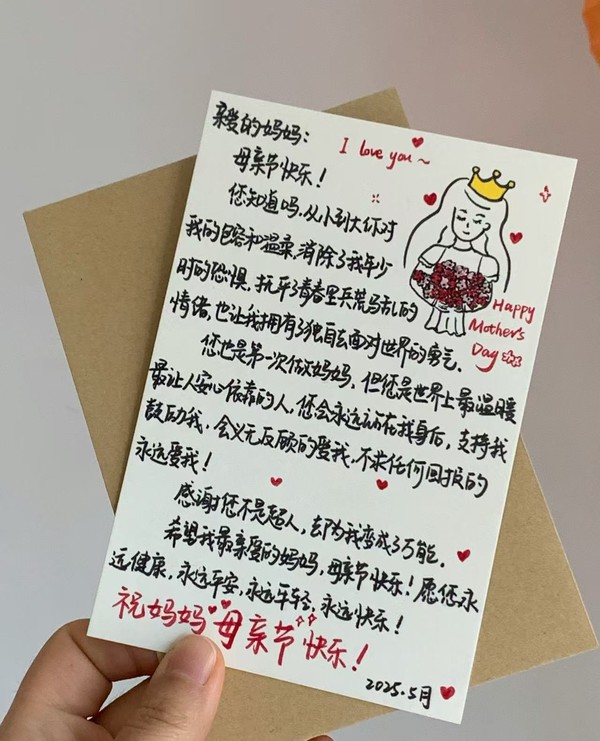 亲爱的妈妈：
I love you~
母亲节快乐！
您知道吗，从小到大你对
我的包容和温柔，消除了我年少
时的恐惧，抚平了青春里兵荒马乱的
情绪，也让我拥有了独自去面对世界的勇气。
Happy
Mother's
Day
您也是第一次做妈妈，但您是世界上最温暖
最让人安心依靠的人，您会永远站在我身后，支持我
鼓励我，会义无反顾的爱我，不求任何回报的
永远爱我！
感谢您不是超人，却为我变成了万能。
希望我最亲爱的妈妈，母亲节快乐！愿您永
远健康，永远平安，永远年轻，永远快乐！
祝妈妈母亲节快乐！
2025.5月